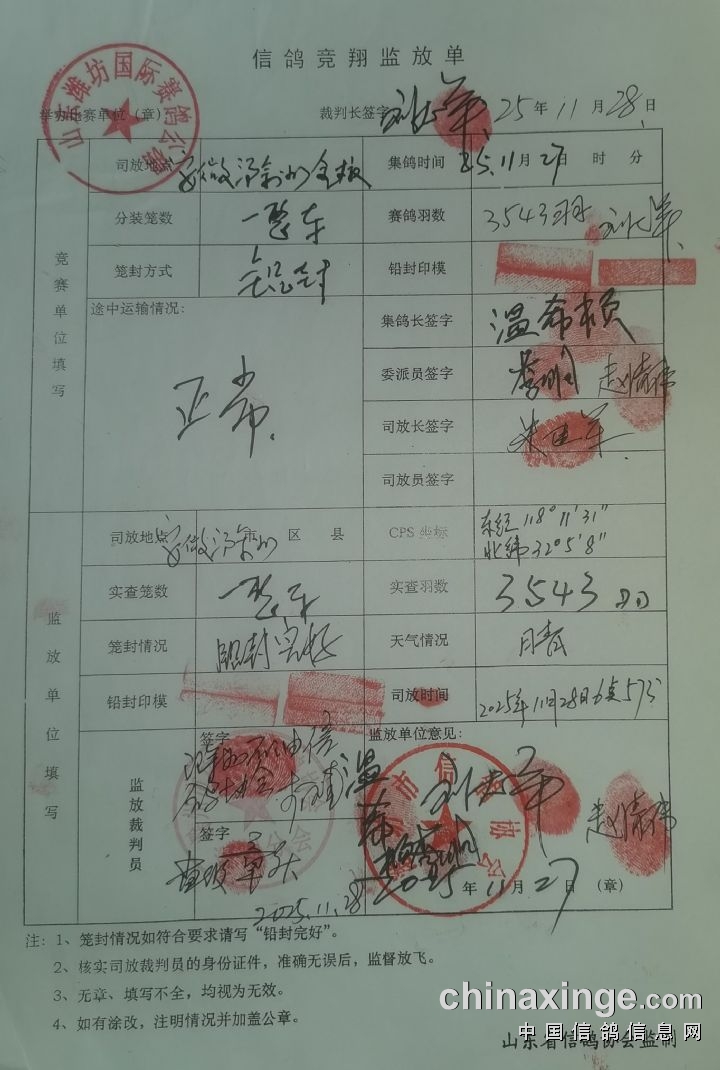 信鸽竞翔监放单
山东潍坊国际赛鸽公
举办比赛单位（章）
裁判长签字 25年11月28日
竞赛单位填写
司放地点 安徽滁州全椒
集鸽时间 25.11月27日 时 分
分装笼数 一整车
赛鸽羽数 3543羽
笼封方式 铅封
铅封印模
途中运输情况：
正常.
集鸽长签字
委派员签字
司放长签字
司放员签字
监放单位填写
司放地点 安徽滁州市 区 县
CPS 坐标 东经118°11′31″
北纬32°5′8″
实查笼数 一整车
实查羽数 3543羽
笼封情况 铅封完好
天气情况 晴
铅封印模
司放时间 2025年11月28日
监放裁判员
签字
监放单位意见：
签字
2025.11.28
2025年11月27日（章）
注：1、笼封情况如符合要求请写“铅封完好”。
2、核实司放裁判员的身份证件，准确无误后，监督放飞。
3、无章、填写不全，均视为无效。
4、如有涂改，注明情况并加盖公章。
chinaxinge.com
中国信鸽信息网
山东省信鸽协会监制